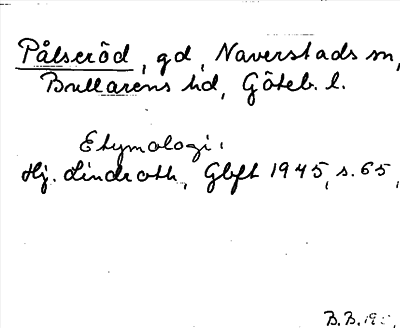 Pålseröd, gd, Naverstads sn,
Bullarens hd, Göteb. l.
Etymologi:
Hj. Lindroth, Gbft 1945, s. 65,
B.B. 19